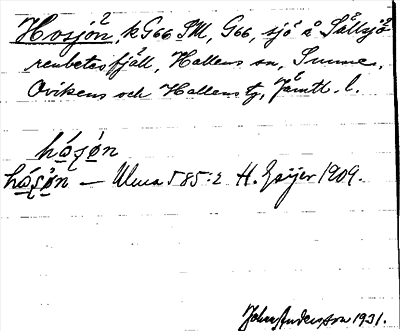 Hosjön² k G66 SM, G66, sjö å Sållsjö
renbetesfjäll, Hallens sn, Sunne,
Ovikens och Hallens tg, Jämtl. l.
hósø̀n
hósø̀n — Ulma 585:2 H. Geijer 1909.
John Andersson 1931.